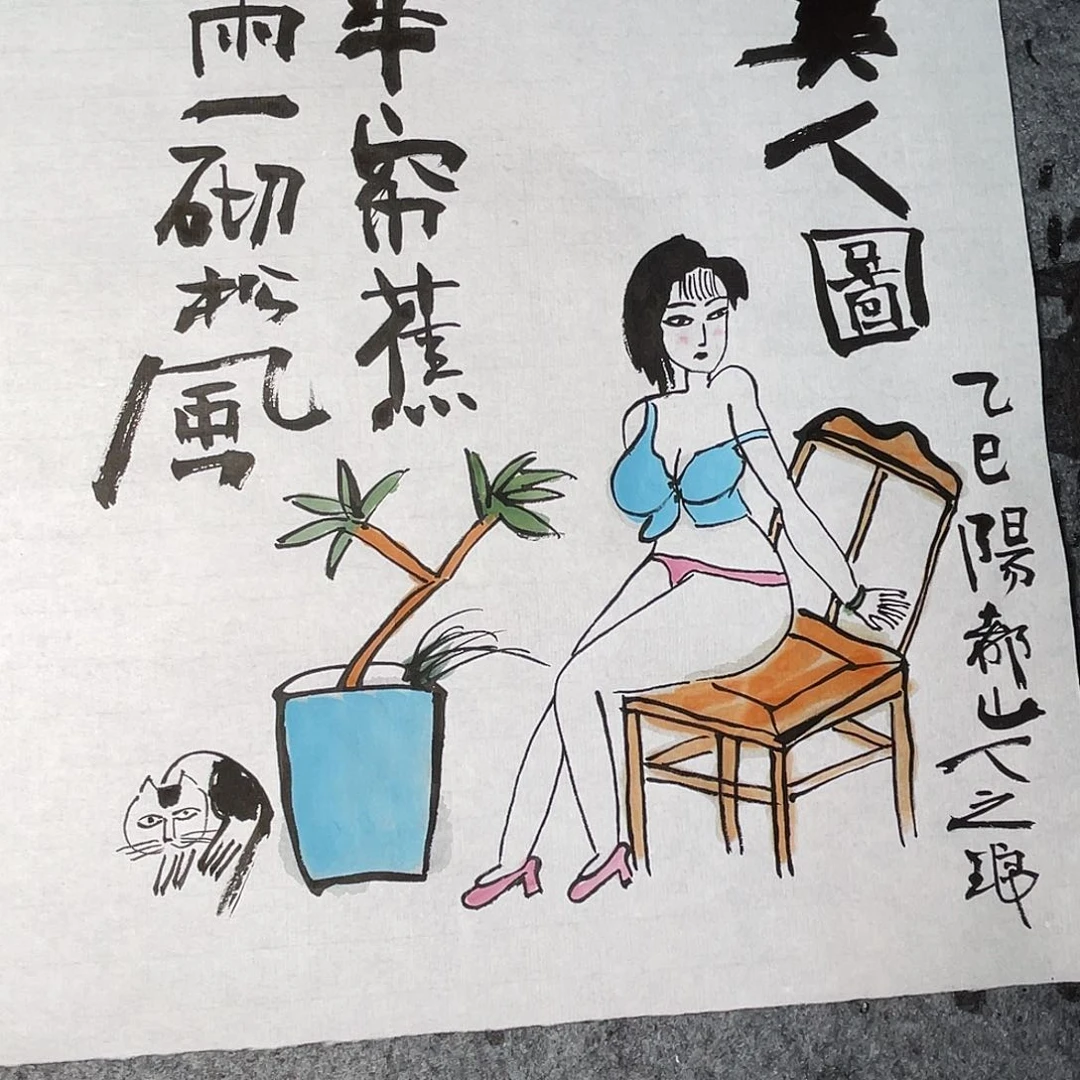 美人圖
乙巳陽都山人之
半帘蕉
雨一砌松風